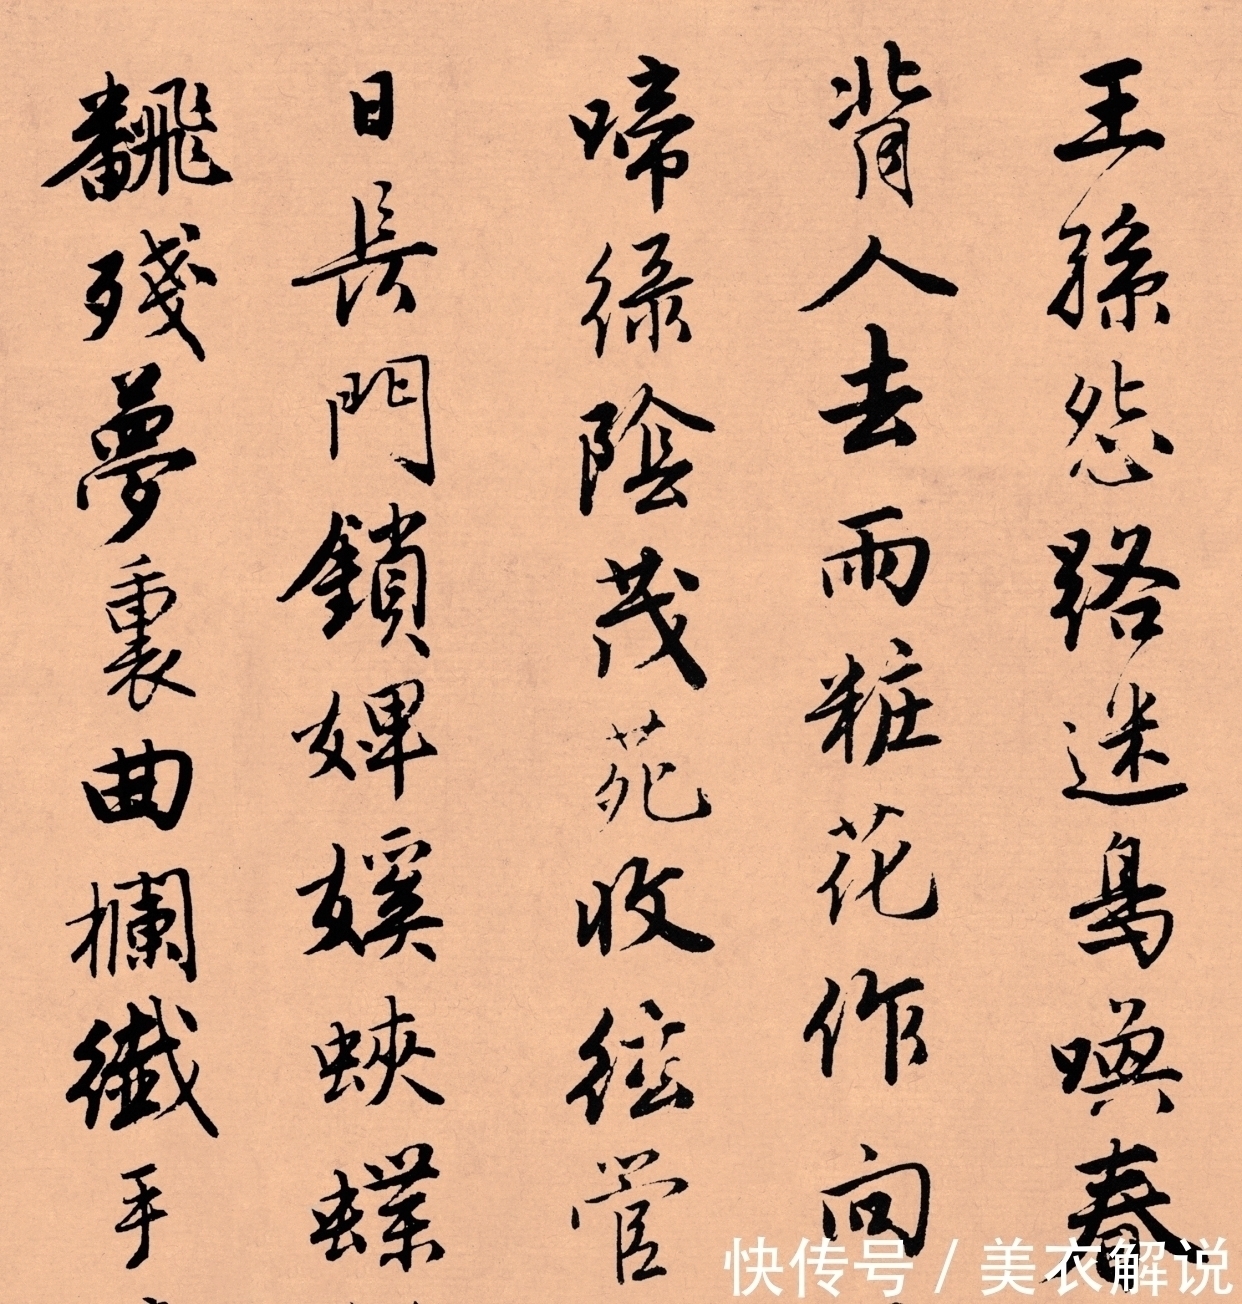 王孫怨路迷鳥喚春
背人去雨粧花作向
啼綠陰茂苑收絃管
日長門鎖婢媛蛺蝶
飜殘夢裏曲欄纖手
快传号 / 美衣解说